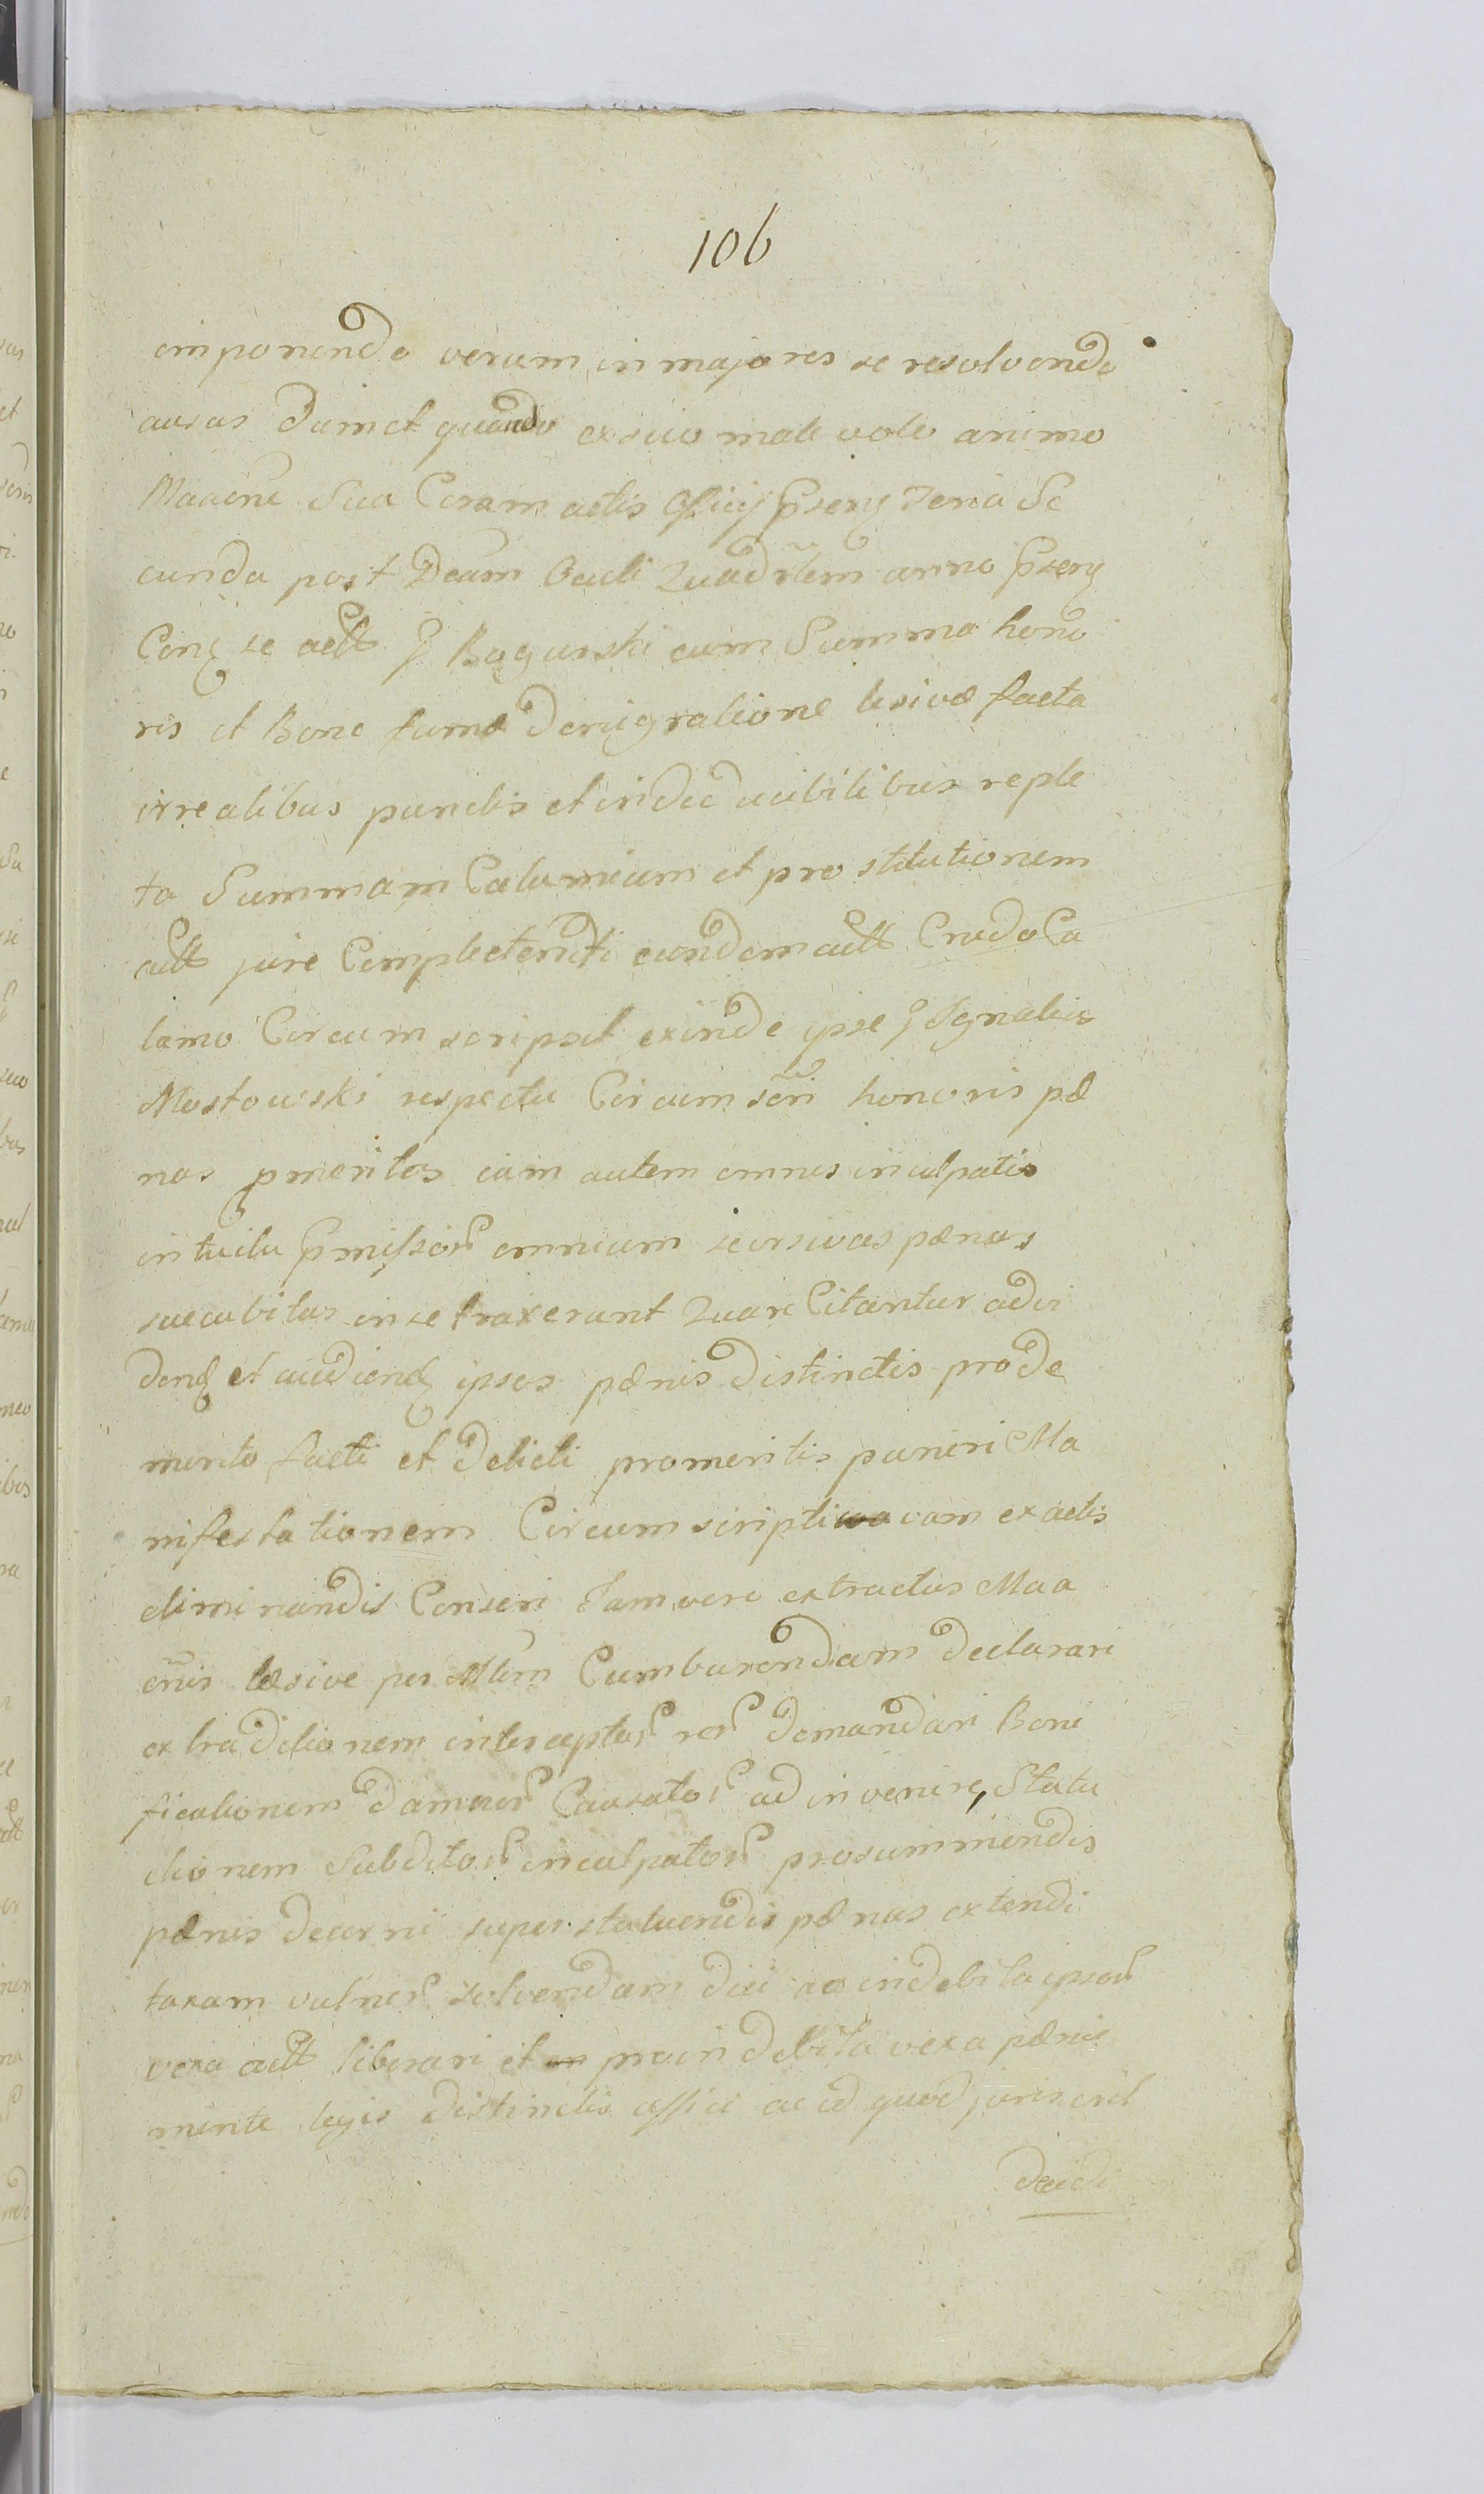 106
imponendo verum in majores se resolvendo
ausus Dum et quando ex suo male volo animo
Maaone Sua Coram actis Officij Pxeny Feria Se
cunda post Dcam Oculi Quadrlem anno Pxeny
Cong se actt G Bogurski cum Summa hono
ris et Bone famæ Denigratione lesivæ facta
irrealibus punctis et indeducibilibus reple
ta Summam Calumium et prostitutionem
actt jure Complectendi eundem actt Crudo Ca
lamo Circumscripsit exinde ipse G Ignatius
Mostowski respectu Circumscrni honoris pæ
nas pmeritas cum autem omnes inculpatis
intuitu pmissor omnium seorsivas pænas
succubitas in se traxerunt Quare Citantur advi
dend et audiend ipsos pænis Distinctis pro de
merito facti et Delicti promeritis puniri Ma
nifestationem Circumscriptivam ex actis
eliminandis Censeri Jam vero extractus Maa
onis læsive per Mtrm Cumburendam Declarari
extraditionem interceptar rer Demandari Boni
ficationem Damnor Causator ad invenire, Statu
itionem Subditor inculpator pro summiendis
pænis Decerni super statuendis pænas extendi
taxam vulner solvendam dici ao indebita ipsor
vexa actt liberari et pro indebita vexa pænis
mente legis distinctis affici ac id quod juris erit
decidi